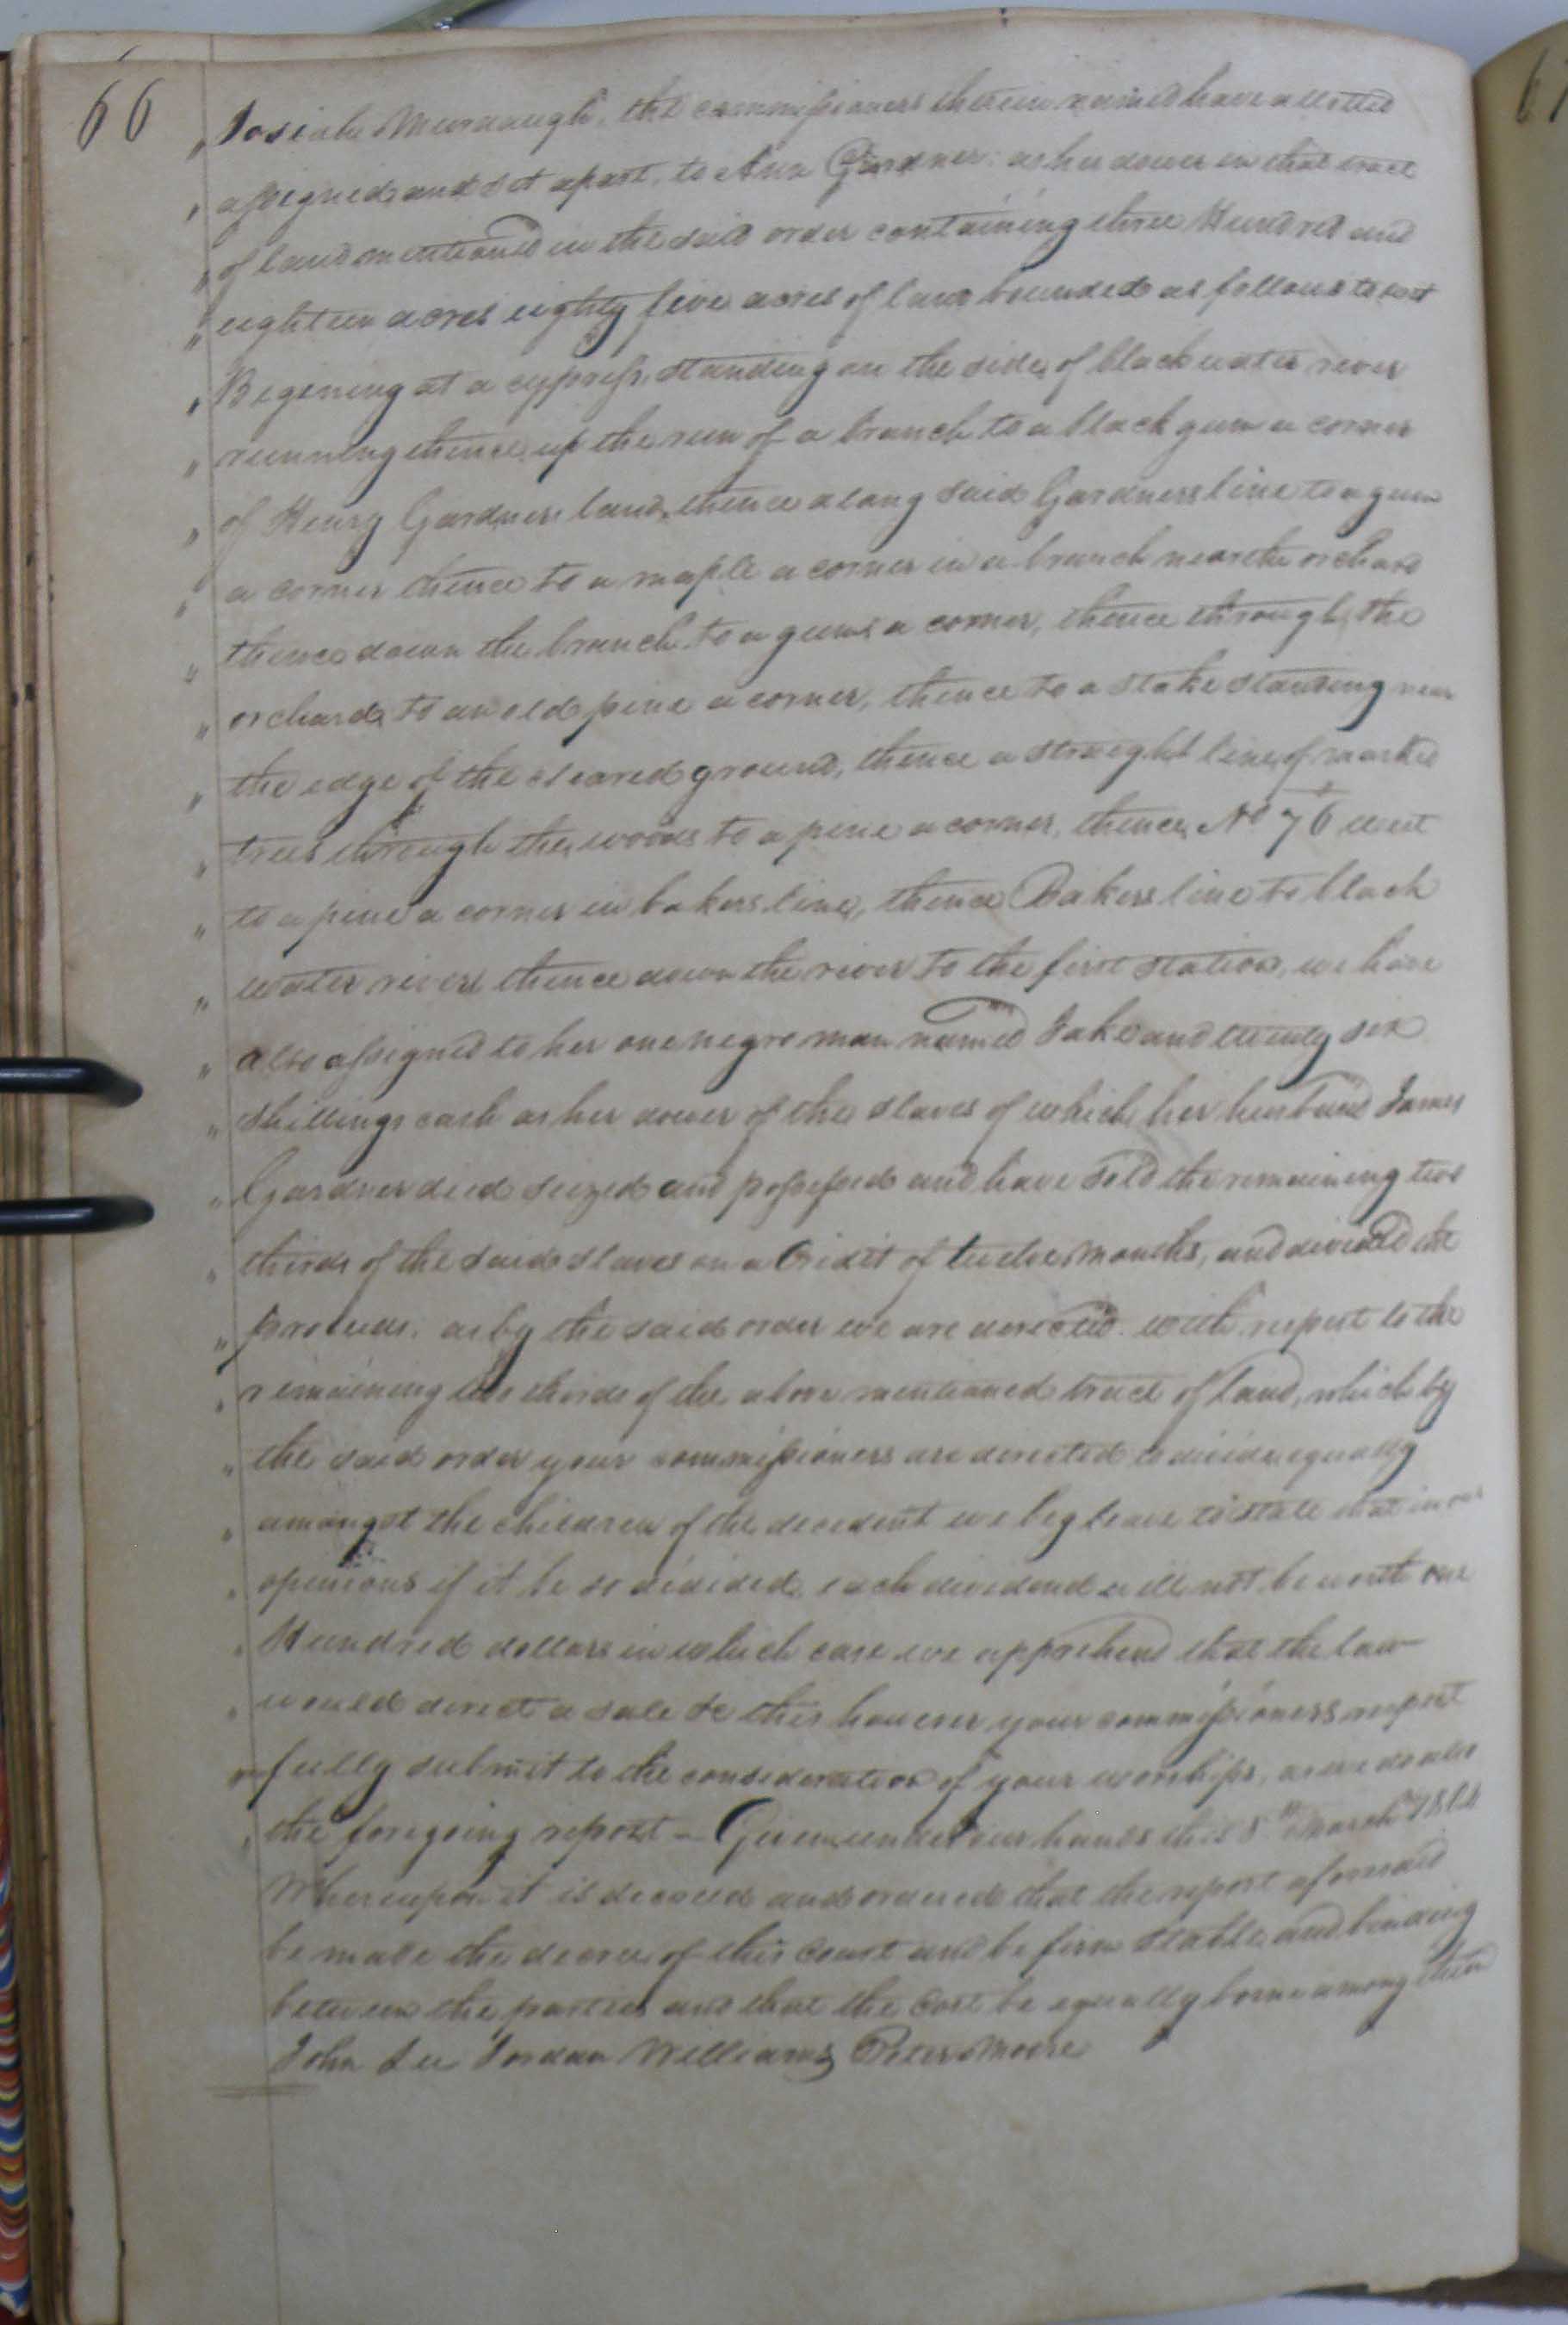 66
" Josiah Murdaugh, the commissioners therein named have allotted
" assigned and set apart, to Ann Gardner, as her dower in that tract
" of land mentioned in the said order containing three Hundred and
" eighteen acres eighty five acres of land bounded as follows to wit
" Begining at a cypress, standing on the side, of black water river
" running thence up the run of a branch to a black gum a corner
" of Henry Gardners land, thence along said Gardners line to a gum
" a corner thence to a maple a corner in a branch near the orchard
" thence down the branch to a gum a corner, thence through the
" orchard, to an old pine a corner, thence to a stake standing near
" the edge of the cleared ground, thence a straight line of marked
" trees through the woods to a pine a corner, thence, No 76 west
" to a pine a corner in bakers line, thence Bakers line to black
" water river thence down the river to the first station, we have
" also assigned to her one negro man named Jake and twenty six
" shillings cash as her dower of the slaves of which her husband James
" Gardner died seized and possessed and have sold the remaining two
" thirds of the said slaves on a Credit of twelve months, and divided the
" proceeds, as by the said order we are directed. with respect to the
" remaining two thirds of the above mentioned tract of land, which by
" the said order your commissioners are directed to divide equally
" amongst the children of the decedent we beg leave to state that in our
" opinions if it be so divided, each dividend will not be worth one
" Hundred dollars in which case we apprehend that the law
" would direct a sale &c this however your commissioners respect
" fully submit to the consideration of your worships, as we do also
" the foregoing report - Given under our hands this 8th March
Whereupon it is decreed and ordered that the report aforesaid
be made the decree of this Court and be firm stable and binding
between the parties and that the Cost be equally borne among them
John Lee Jordan Williams Peter Moore